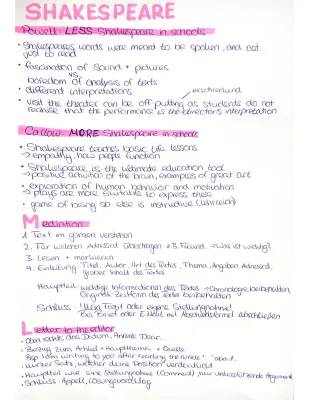 SHAKESPEARE
Powell: LESS Shakespeare in schools
• Shakespeares words were meant to be spoken, and not
just to read
• fascination of sound + pictures
vs.
boredom of analysis of texts
• different interpretations
erschreckend
• visit the theater can be off putting as students do not
realise that the performance is the director's interpretation
Callow: MORE Shakespeare in schools
• Shakespeare teaches basic life lessons
→ empathy, how people function
• Shakespeare is the ultimate education tool
→ positive activation of the brain, examples of great art
• exploration of human behavior and motivation
→ plays are more suitable to express these
• game of being so else is instructive (lehrreich)
Mediation
1. Text im ganzen verstehen
2. Für welchen Adressat übertragen z.B. Freund → Was ist wichtig?
3. Lesen + markieren
4. Einleitung: Titel, Autor, Art des Textes, Thema, Angaben Adressat,
grober Inhalt des Textes
Hauptteil: wichtige Informationen des Textes → Chronologie beibehalten,
Original Zeitform des Textes beibehalten
Schluss: Fazit oder eigene Stellungnahme!
Bei Brief oder E-Mail mit Abschiedsformel abschließen
Letter to the editor
• oben rechts das Datum, Anrede: Dear...
• Bezug zum Artikel + Hauptthema + Quelle
Bsp. I am writing to you after reading the article "..." about...
• kurzer Satz, welcher deine Position verdeutlicht
• Hauptteil wie eine Stellungnahme (Comment) nur Argumente
• Schluss: Appell, Lösungsvorschlag